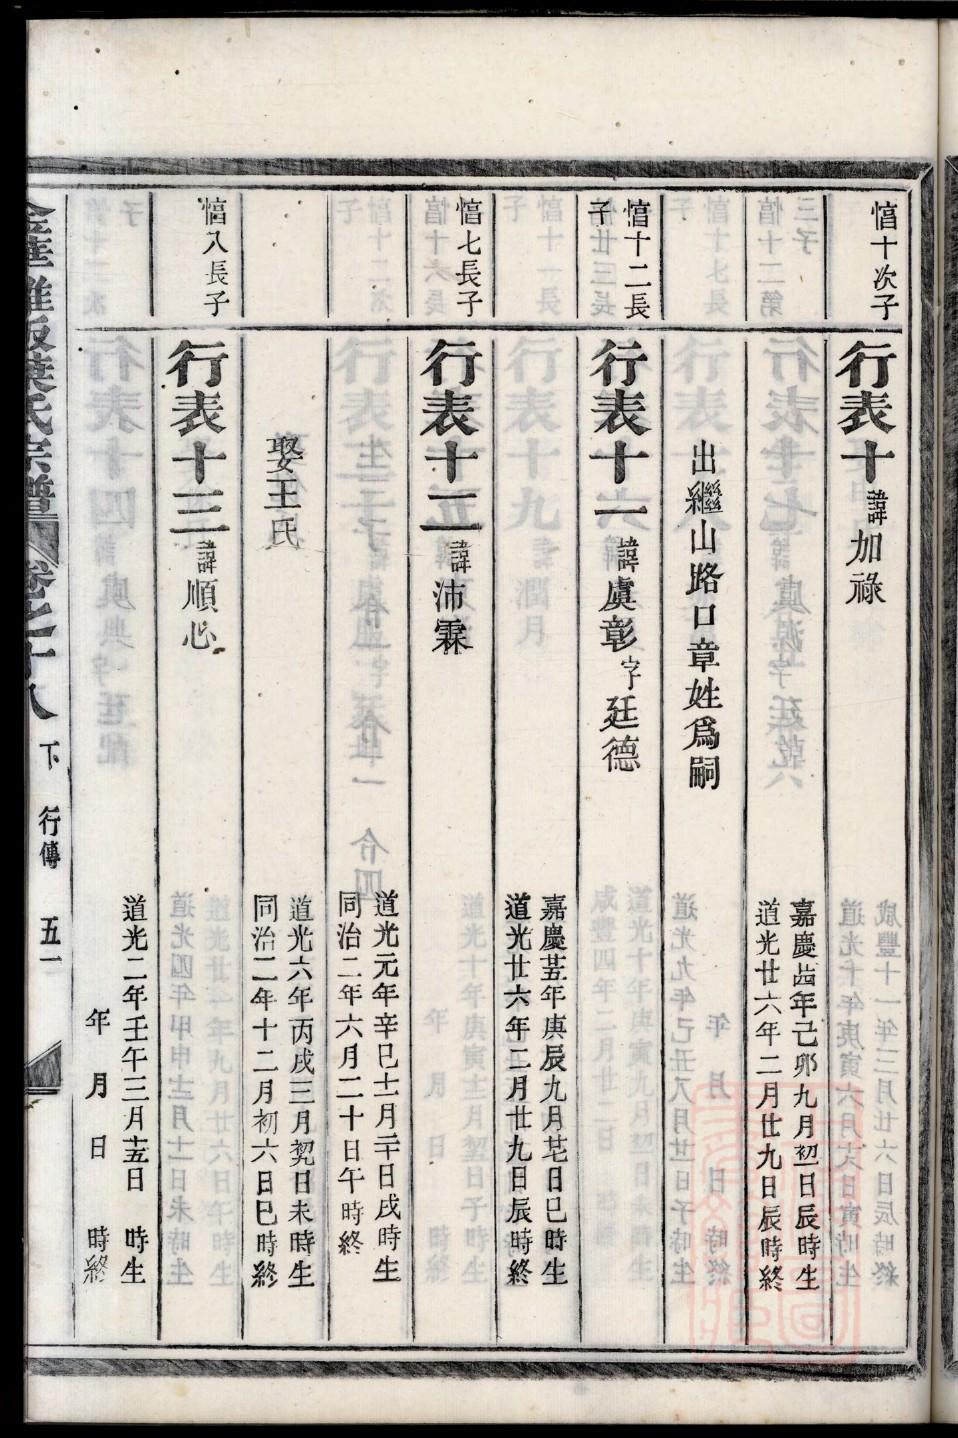 愭十次子
行表十諱加祿
嘉慶廿四年己卯九月初一日辰時生
道光廿六年二月廿九日辰時終
出繼山路口章姓爲嗣
愭十二長子
行表十一諱虞彰字廷德
嘉慶廿五年庚辰九月廿七日巳時生
道光廿六年二月廿九日辰時終
愭七長子
行表十二諱沛霖
道光元年辛巳十一月二十日戌時生
同治二年六月二十日午時終
娶王氏
道光六年丙戌三月初九日未時生
同治二年十二月初六日巳時終
愭八長子
行表十三諱順心
道光二年壬午三月十五日 時生
年 月 日 時終
金華雅畈葉氏宗譜 卷之十八 下 行傳 五一